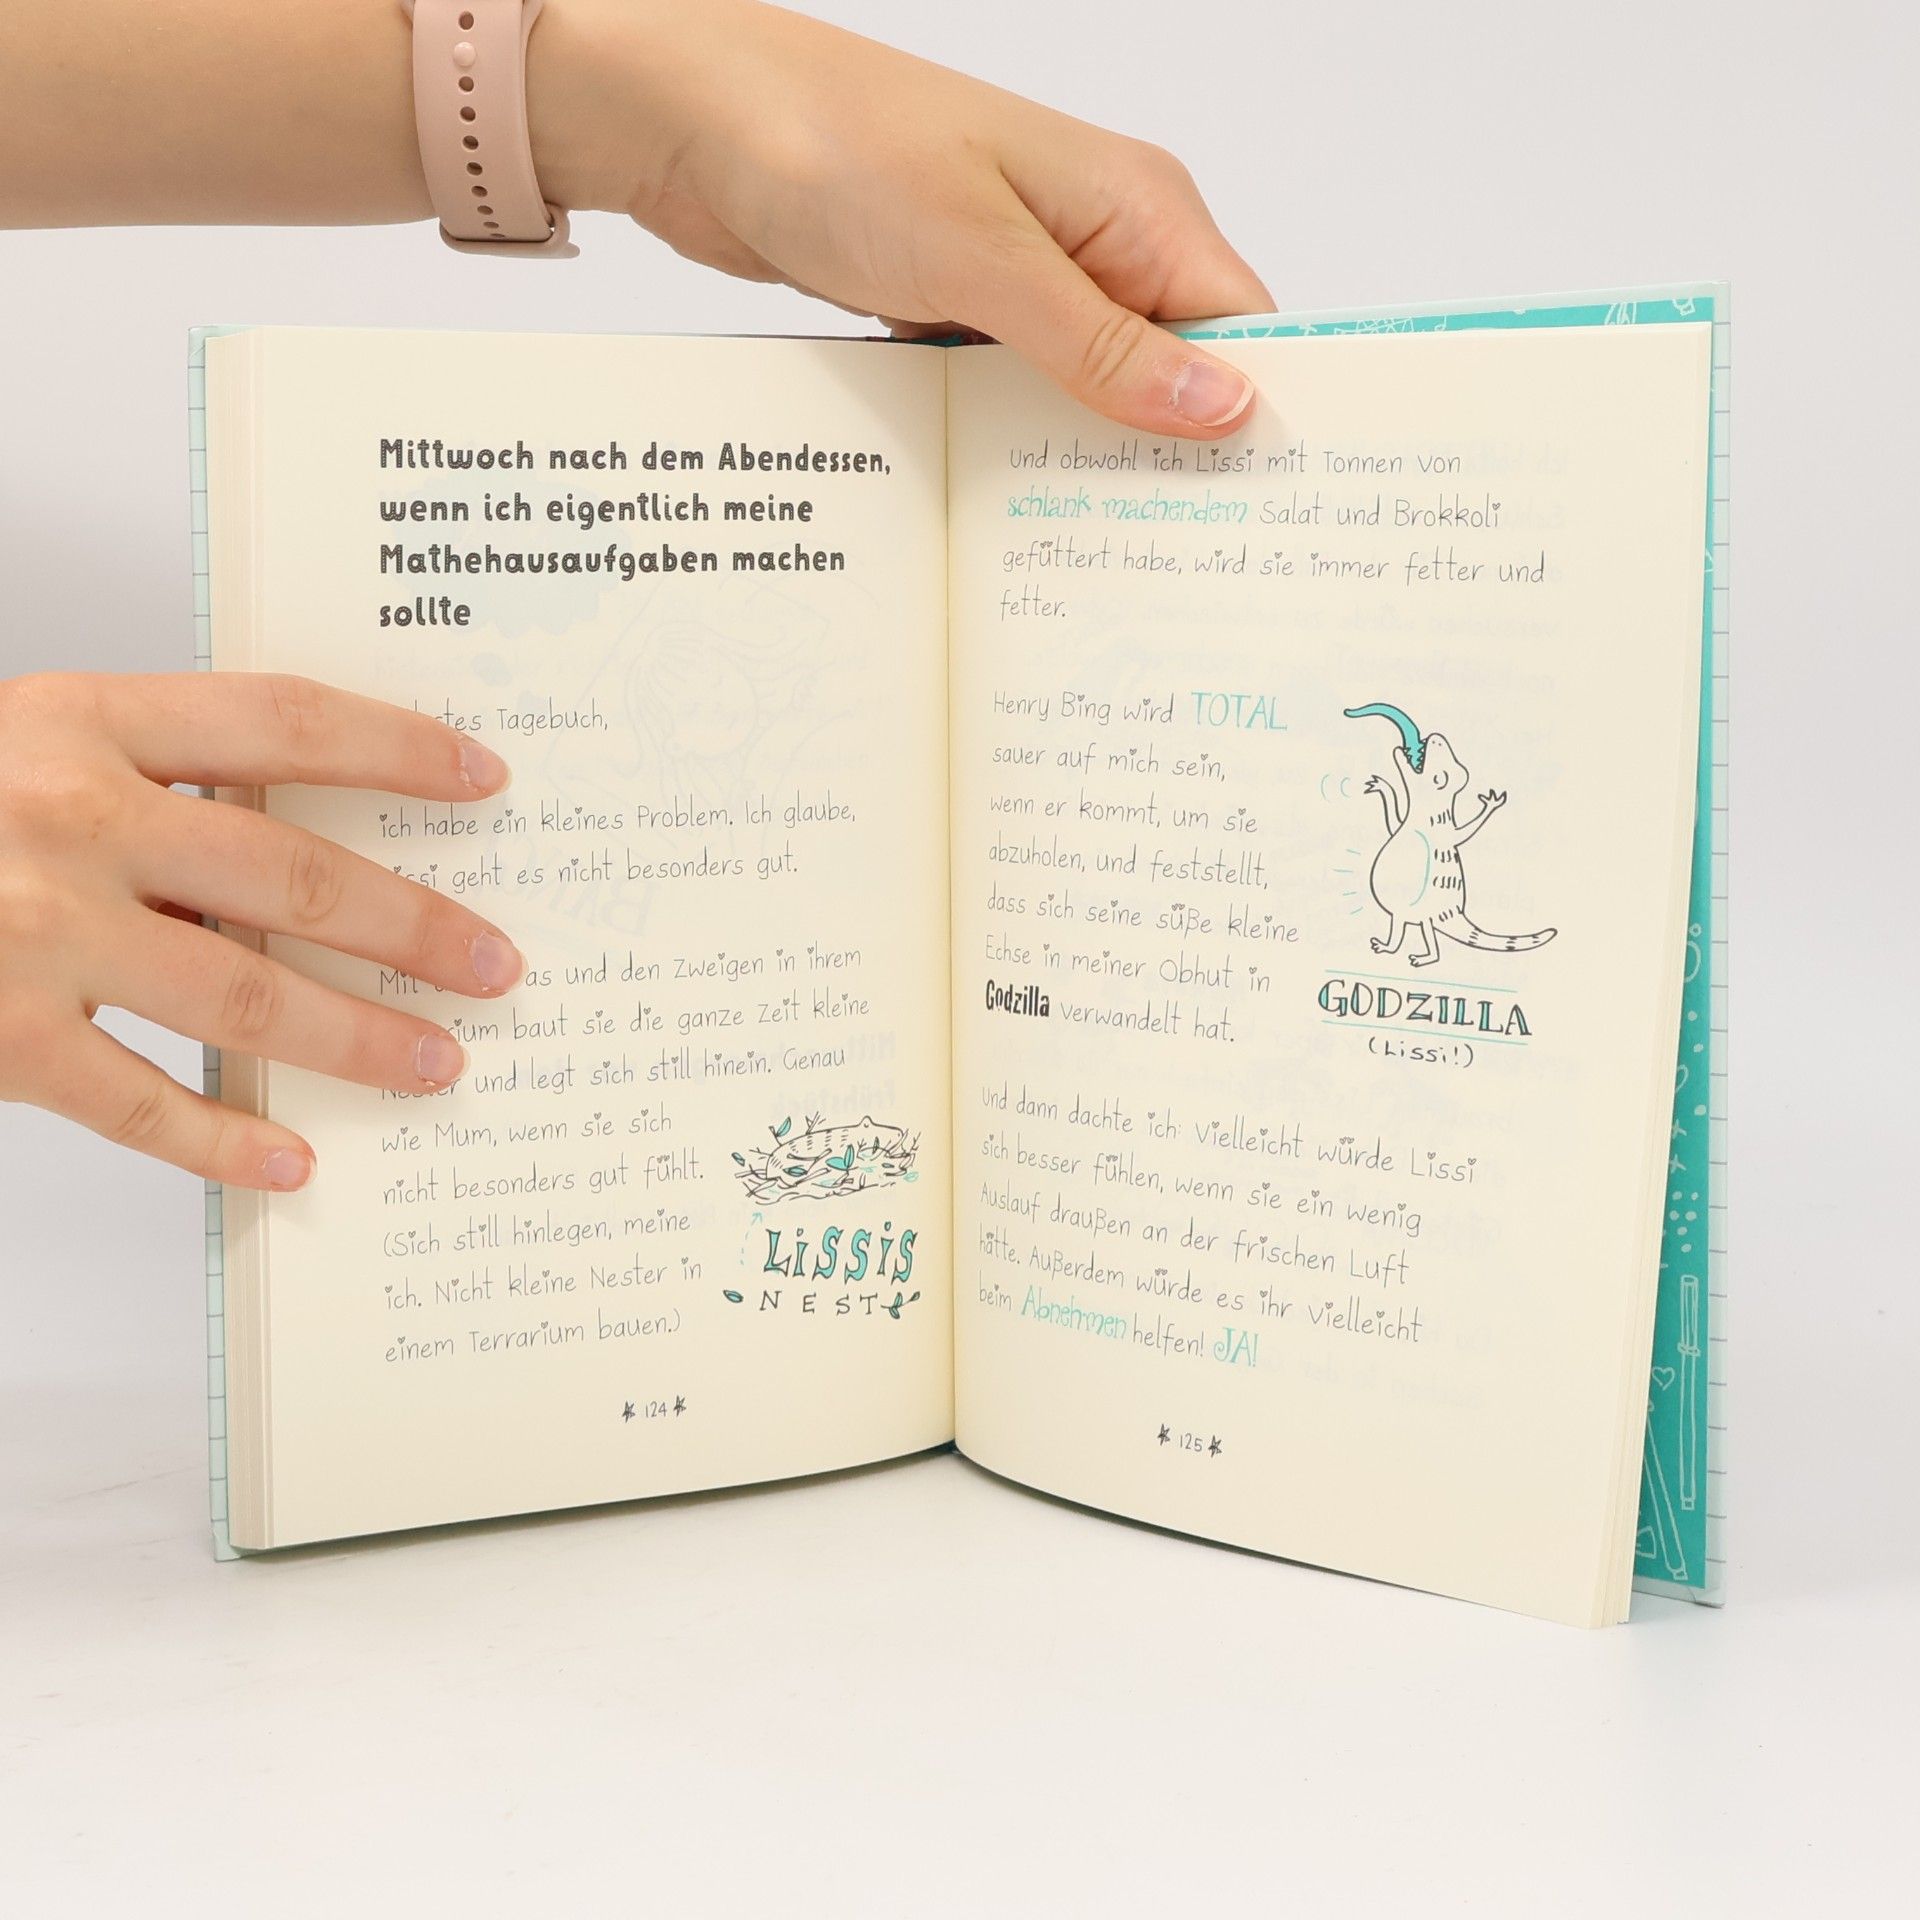 Mittwoch nach dem Abendessen,
wenn ich eigentlich meine
Mathehausaufgaben machen
sollte
Tagebuch,
ich habe ein kleines Problem. Ich glaube,
geht es nicht besonders gut.
Mit und den Zweigen in ihrem
baut sie die ganze Zeit kleine
Nester und legt sich still hinein. Genau
wie Mum, wenn sie sich
nicht besonders gut fühlt.
(Sich still hinlegen, meine
ich. Nicht kleine Nester in
einem Terrarium bauen.)
LISSIS
NEST
124
Und obwohl ich Lissi mit Tonnen von
schlank machendem Salat und Brokkoli
gefüttert habe, wird sie immer fetter und
fetter.
Henry Bing wird TOTAL
sauer auf mich sein,
wenn er kommt, um sie
abzuholen, und feststellt,
dass sich seine süße kleine
Echse in meiner Obhut in
Godzilla verwandelt hat.
GODZILLA
(Lissi!)
Und dann dachte ich: Vielleicht würde Lissi
sich besser fühlen, wenn sie ein wenig
Auslauf draußen an der frischen Luft
hätte. Außerdem würde es ihr vielleicht
beim Abnehmen helfen! JA!
125